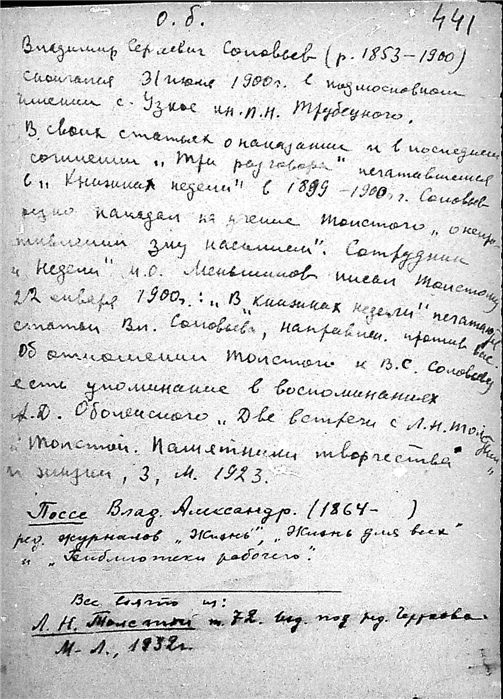 о. б. 441
Владимир Сергеевич Соловьев (р. 1853–1900)
скончался 31 июля 1900г. в подмосковном
имении с. Узкое кн. П.Н. Трубецкого.
В своих статьях о наказании и в последнем
сочинении „Три разговора" печатавшемся
в „Книжках недели" в 1899–1900г. Соловьев
резко нападал на учение Толстого „о непро-
тивлении злу насилием". Сотрудник
„Недели" М.О. Меньшиков писал Толстому
22 января 1900г.: „В книжках недели" печатаются
статьи Вл. Соловьева, направлен. против вас.
Об отношении Толстого к В.С. Соловьеву
есть упоминание в воспоминаниях
А.Д. Оболенского „Две встречи с Л.Н. Толстым"
„Толстой. Памятники творчества
и жизни, 3, М. 1923.
Поссе Влад. Александр. (1864– )
ред. журналов „Жизнь", „Жизнь для всех"
и „Библиотеки рабочего".
Все взято из:
Л. Н. Толстой т. 72. изд. под ред. Черткова
М-Л., 1932г.